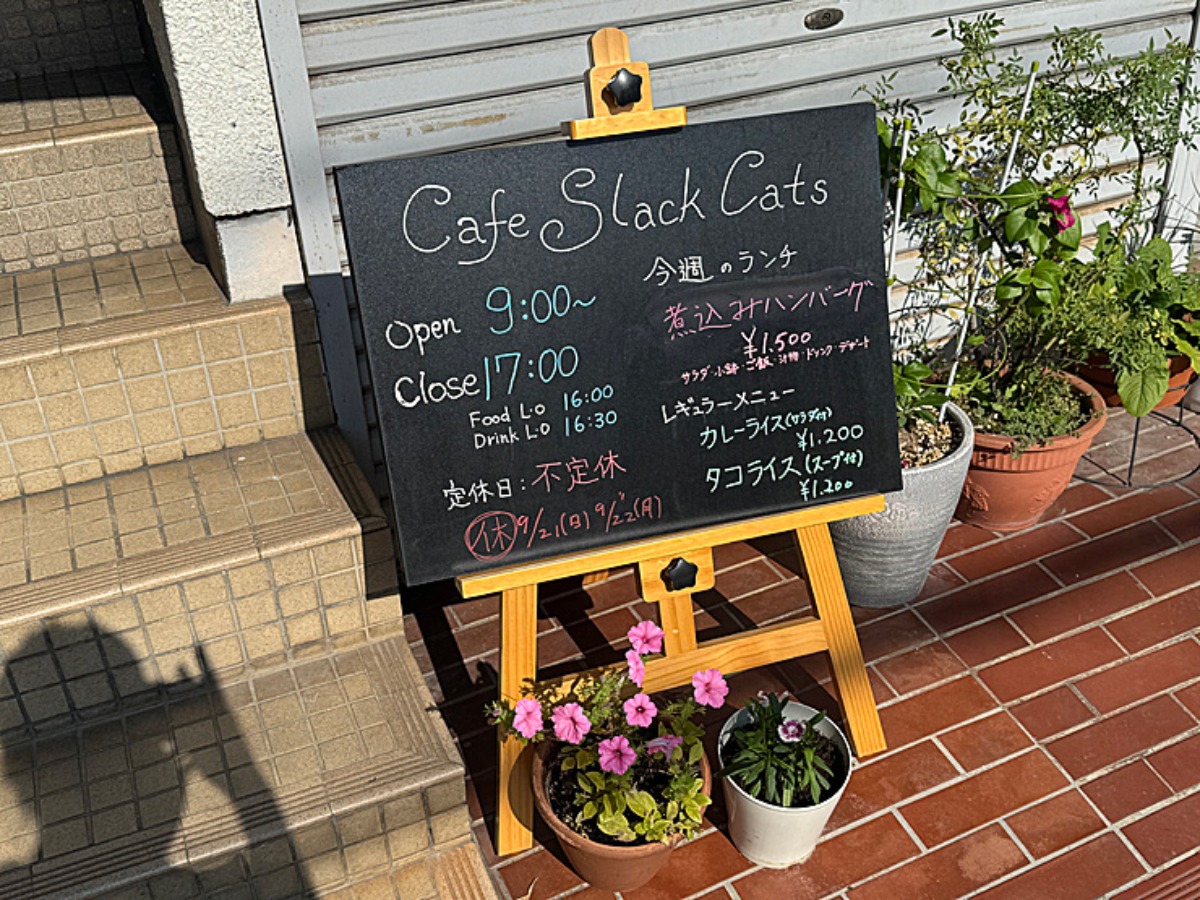 Cafe Slack Cats
Open 9:00~
Close 17:00
Food L.O 16:00
Drink L.O 16:30
定休日:不定休
休 9/21(日) 9/22(月)
今週のランチ
煮込みハンバーグ
¥1.500
サラダ・小鉢・ご飯・汁物・ドリンク・デザート
レギュラーメニュー
カレーライス(サラダ付)
¥1.200
タコライス(スープ付)
¥1.200